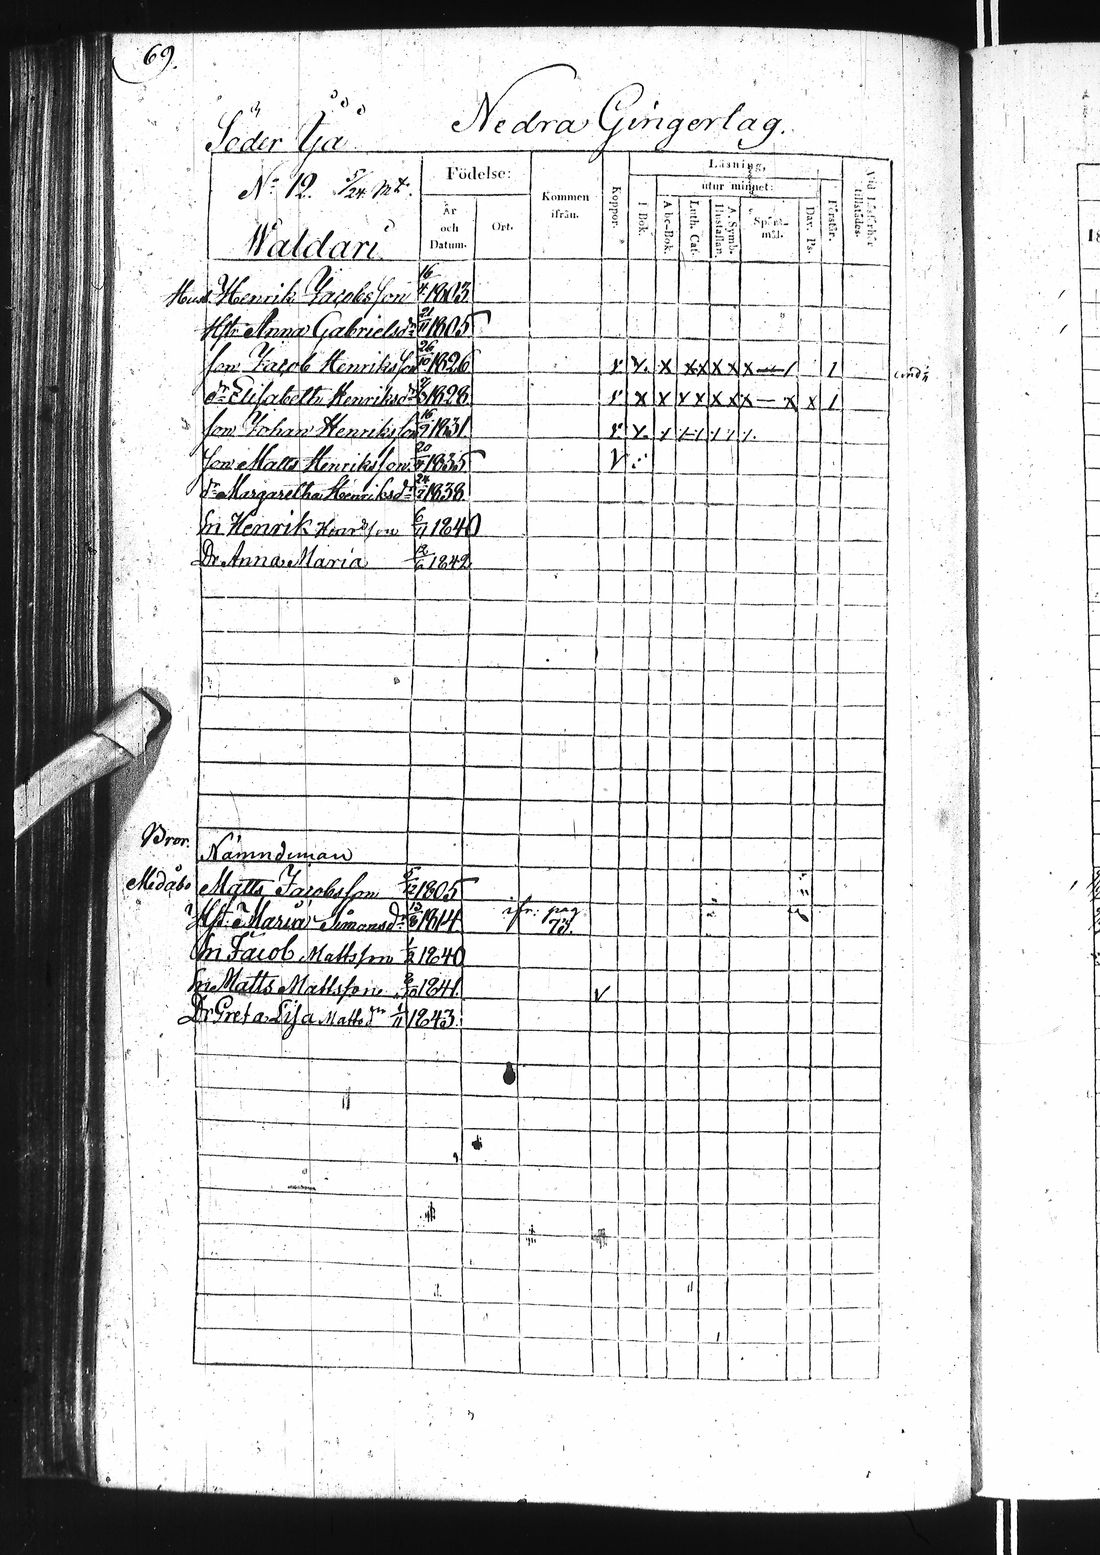 69.
Nedra Gingerlag.
Söder Yja
No 12. 5/24 mt.
Waldari
Födelse:
År och Datum.
Ort.
Kommen ifrån.
Koppor.
Läsning,
utur minnet:
I Bok.
Abc-Bok.
Luth. Cat.
A. Symb. Hustaflan.
Spörsmål.
Dav. Ps.
Förstår.
Vid Läsförhör tillstädes.
Husb. Henrik Jacobsson 16/4 1803
Hstr Anna Gabrielsdr 21/11 1805
son Jacob Henriksson 26/10 1826
dr Elisabeth Henriksdr 1828
son Johan Henriksson 16/9 1831
son Matts Henriksson 20 1835
dr Margaretha Henriksdr 24 1838
Sn Henrik Henrsson 6/11 1840
Dr Anna Maria 12/6 1842
Bror.
Nämndeman
Medåbo Matts Jacobsson 5/12 1805
Hst. Maria Simonsdr 13/8 1814 ifr: pag 73
Sn Jacob Mattsson 1/2 1840
Sn Matts Mattsson 1841
Dr Greta Lisa Mattsdr 1/11 1843